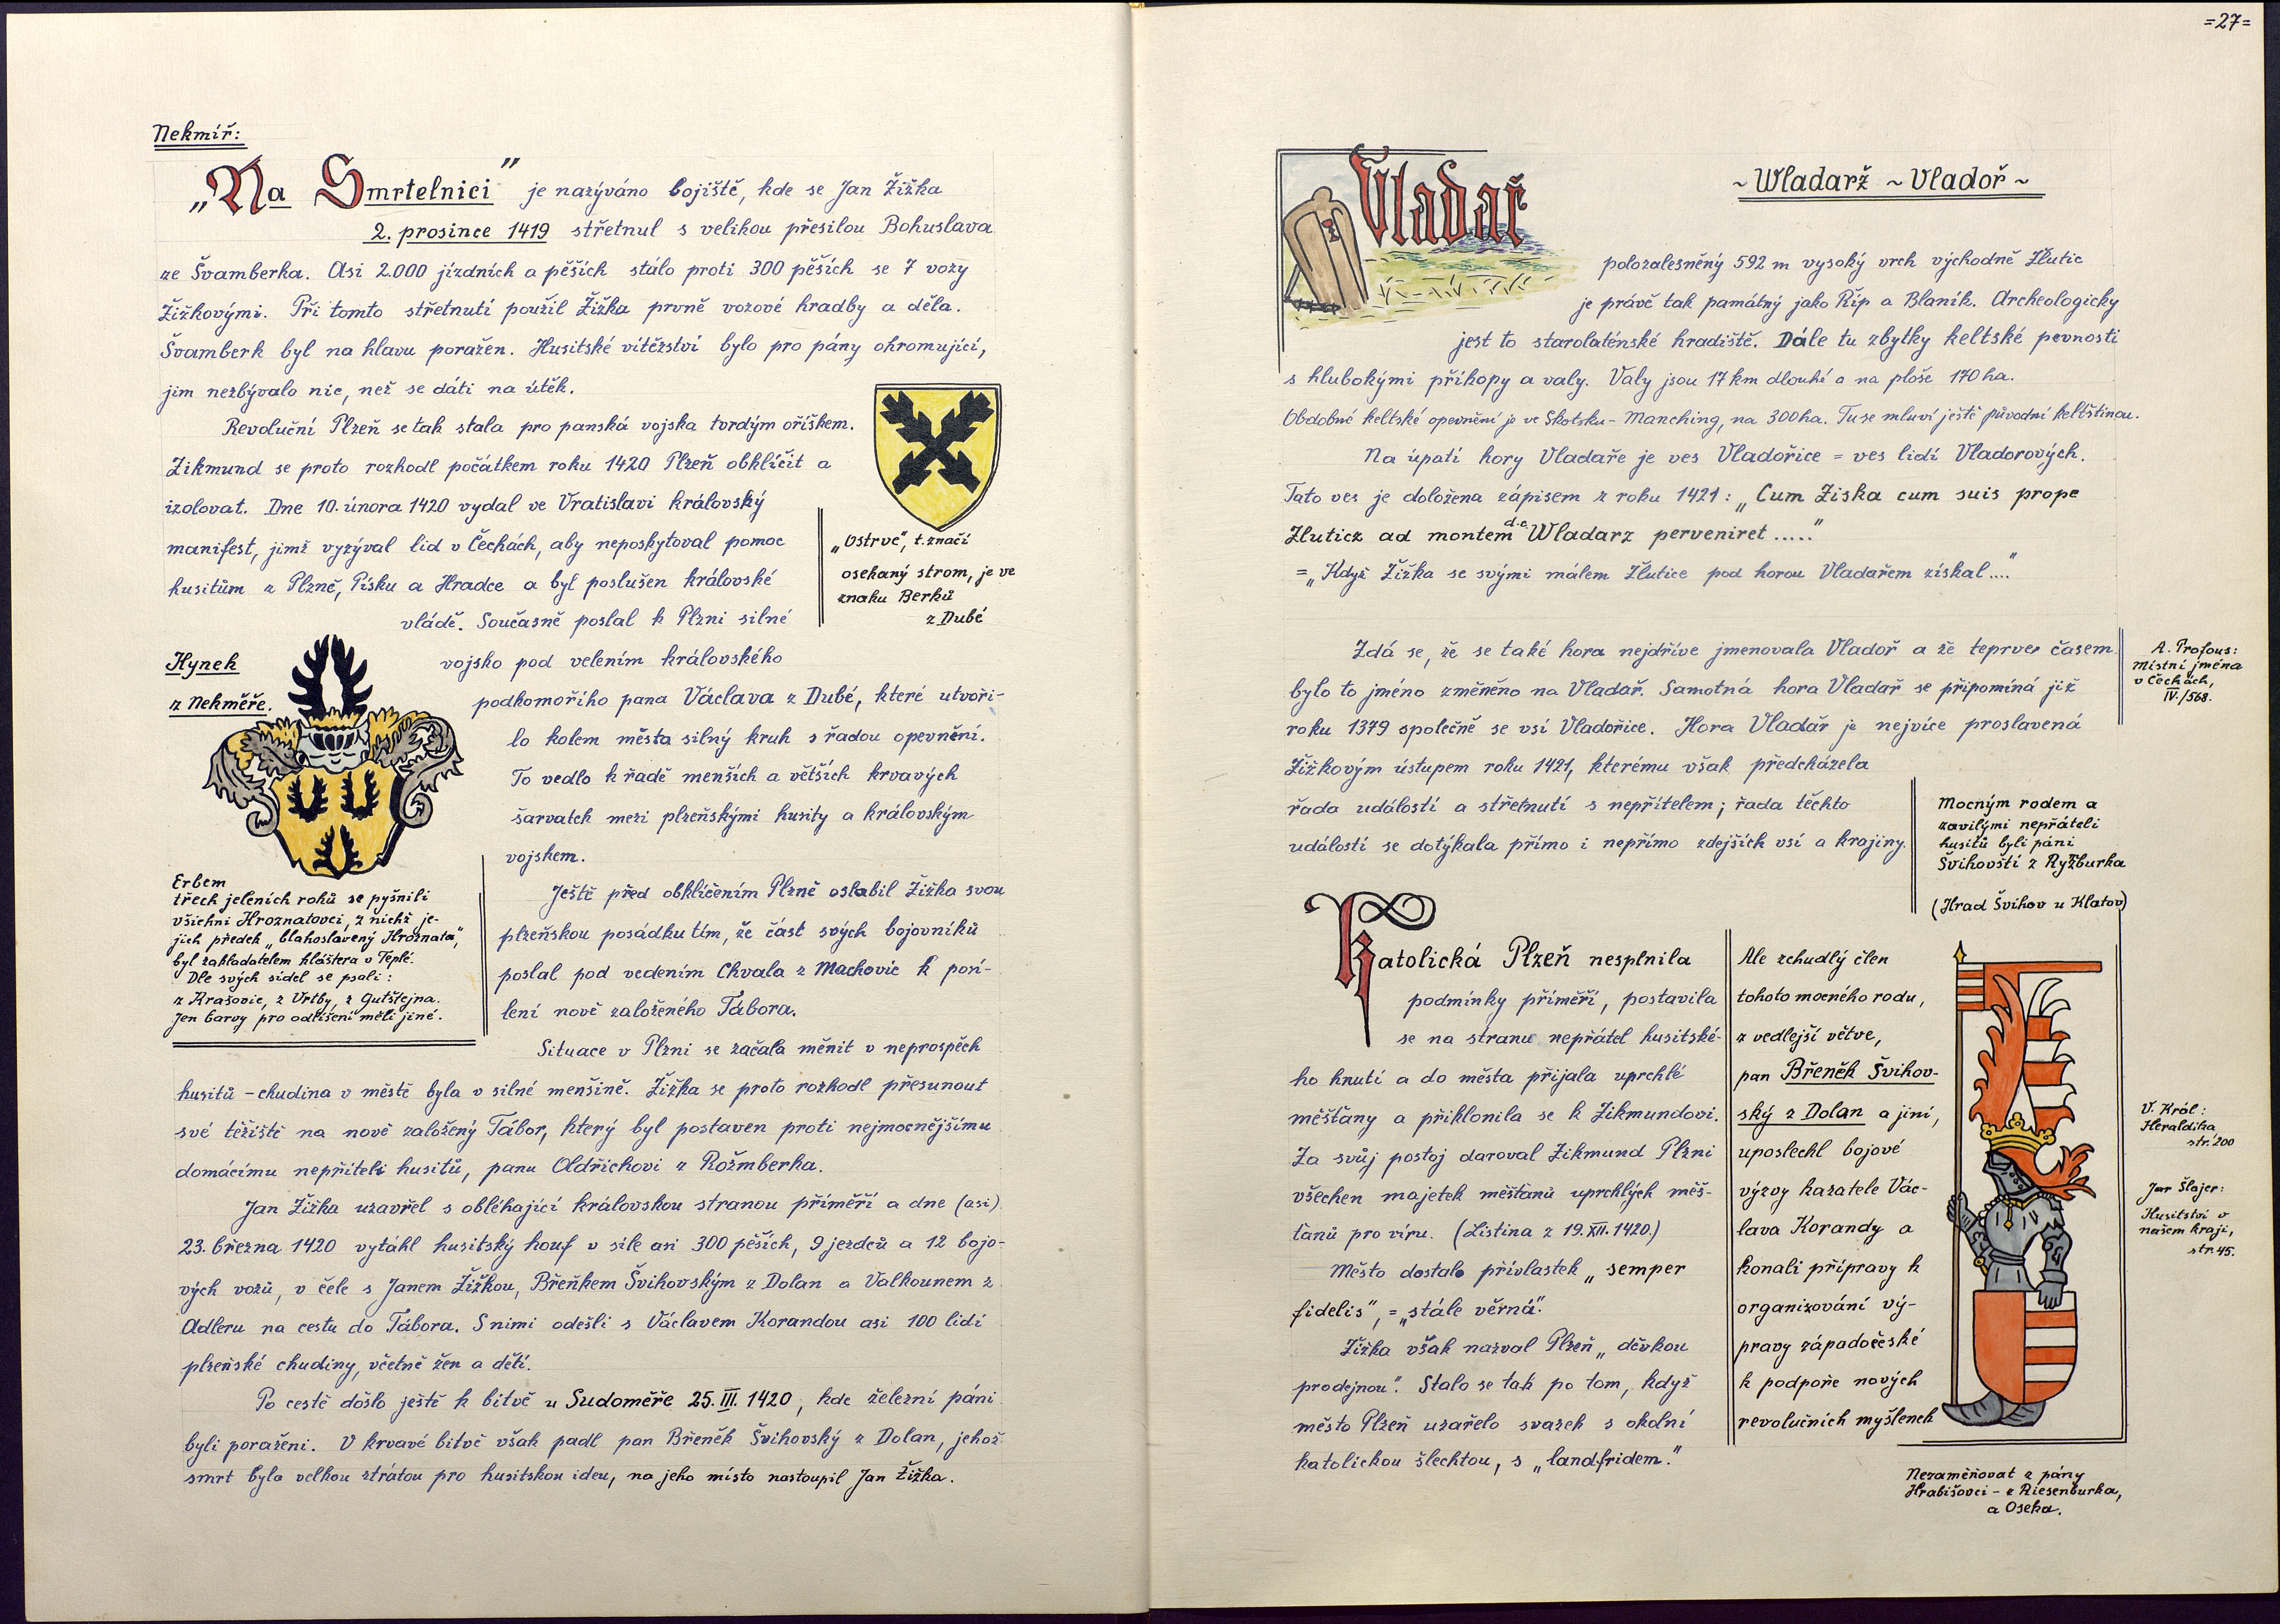 Nekmíř:
„Na Smrtelnici” je nazýváno bojiště, kde se Jan Žižka
2. prosince 1419 střetnul s velikou přesilou Bohuslava
ze Švamberka. Asi 2.000 jízdních a pěších stálo proti 300 pěších se 7 vozy
Žižkovými. Při tomto střetnutí použil Žižka prvně vozové hradby a děla.
Švamberk byl na hlavu poražen. Husitské vítězství bylo pro pány ohromující,
jim nezbývalo nic, než se dáti na útěk.
Revoluční Plzeň se tak stala pro panská vojska tvrdým oříškem.
Zikmund se proto rozhodl počátkem roku 1420 Plzeň obklíčit a
izolovat. Dne 10. února 1420 vydal ve Vratislavi královský
manifest, jimž vyzýval lid v Čechách, aby neposkytoval pomoc
husitům z Plzně, Písku a Hradce a byl poslušen královské
vládě. Současně poslal k Plzni silné
vojsko pod velením královského
podkomořího pana Václava z Dubé, které utvoři-
lo kolem města silný kruh s řadou opevnění.
To vedlo k řadě menších a větších krvavých
šarvatek mezi plzeňskými husity a královským
vojskem.
„Ostrve”, t.značí
osekaný strom, je ve
znaku Berků
z Dubé
Hynek
z Nekměře.
Erbem
třech jeleních rohů se pyšnili
všichni Hroznatovci, z nichž je-
jich předek „blahoslavený Hroznata”,
byl zakladatelem kláštera v Teplé.
Dle svých sídel se psali:
z Krašovic, z Vrtby, z Gutštejna.
Jen barvy pro odlišení měli jiné.
Ještě před obklíčením Plzně oslabil Žižka svou
plzeňskou posádku tím, že část svých bojovníků
poslal pod vedením Chvala z Machovic k posí-
lení nově založeného Tábora.
Situace v Plzni se začala měnit v neprospěch
husitů - chudina v městě byla v silné menšině. Žižka se proto rozhodl přesunout
své těžiště na nově založený Tábor, který byl postaven proti nejmocnějšímu
domácímu nepříteli husitů, panu Oldřichovi z Rožmberka.
Jan Žižka uzavřel s obléhající královskou stranou příměří a dne (asi)
23. března 1420 vytáhl husitský houf v síle asi 300 pěších, 9 jezdců a 12 bojo-
vých vozů, v čele s Janem Žižkou, Břeňkem Švihovským z Dolan a Valkounem z
Adleru na cestu do Tábora. S nimi odešli s Václavem Korandou asi 100 lidí
plzeňské chudiny, včetně žen a dětí.
Po cestě došlo ještě k bitvě u Sudoměře 25. III. 1420, kde železní páni
byli poraženi. V krvavé bitvě však padl pan Břeněk Švihovský z Dolan, jehož
smrt byla velkou ztrátou pro husitskou ideu, na jeho místo nastoupil Jan Žižka.
=27=
Vladař
~ Wladarž ~ Vladoř ~
polozalesněný 592 m vysoký vrch východně Žlutic
je právě tak památný jako Říp a Blaník. Archeologicky
jest to starolaténské hradiště. Dále tu zbytky keltské pevnosti
s hlubokými příkopy a valy. Valy jsou 17 km dlouhé a na ploše 170 ha.
Obdobné keltské opevnění je ve Skotsku - Manching, na 300 ha. Tu se mluví ještě původní keltštinou.
Na úpatí hory Vladaře je ves Vladořice = ves lidí Vladorových.
Tato ves je doložena zápisem z roku 1421: „Cum Ziska cum suis prope
Zluticz ad montem d.c. Wladarz perveniret .....”
= „Když Žižka se svými málem Žlutice pod horou Vladařem získal....”
Zdá se, že se také hora nejdříve jmenovala Vladoř a že teprver časem
bylo to jméno změněno na Vladař. Samotná hora Vladař se připomíná již
roku 1379 společně se vsí Vladořice. Hora Vladař je nejvíce proslavená
Žižkovým ústupem roku 1421, kterému však předcházela
řada událostí a střetnutí s nepřítelem; řada těchto
událostí se dotýkala přímo i nepřímo zdejších vsí a krajiny.
A. Profous:
Místní jména
v Čechách,
IV./568.
Mocným rodem a
zavilými nepřáteli
husitů byli páni
Švihovští z Ryžburka
(Hrad Švihov u Klatov)
Katolická Plzeň nesplnila
podmínky příměří, postavila
se na stranu nepřátel husitské-
ho hnutí a do města přijala uprchlé
měšťany a přiklonila se k Zikmundovi.
Za svůj postoj daroval Zikmund Plzni
všechen majetek měšťanů uprchlých měš-
ťanů pro víru. (Listina z 19. XII. 1420.)
Město dostalo přívlastek „semper
fidelis”, = „stále věrná”.
Žižka však nazval Plzeň „děvkou
prodejnou”. Stalo se tak po tom, když
město Plzeň uzařelo svazek s okolní
katolickou šlechtou, s „landfridem.”
Ale zchudlý člen
tohoto mocného rodu,
z vedlejší větve,
pan Břeněk Švihov-
ský z Dolan a jiní,
uposlechl bojové
výzvy kazatele Vác-
lava Korandy a
konali přípravy k
organizování vý-
pravy západočeské
k podpoře nových
revolučních myšlenek
V. Král:
Heraldika
str. 200
Jar Šlajer:
Husitství v
našem kraji,
str. 45.
Nezaměňovat z pány
Hrabišovci - z Riesenburka,
a Oseka.